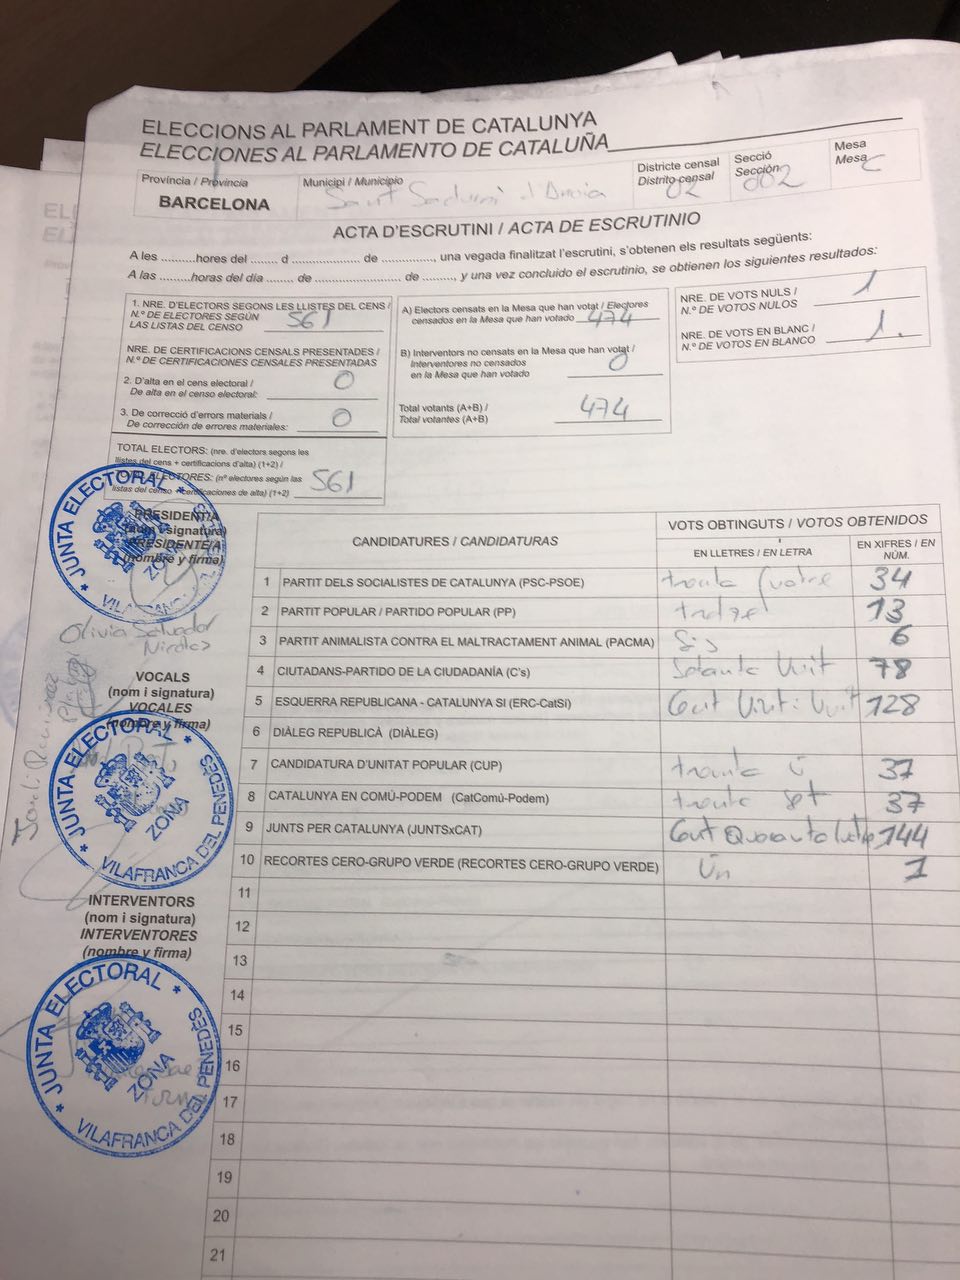 ELECCIONS AL PARLAMENT DE CATALUNYA
ELECCIONES AL PARLAMENTO DE CATALUÑA
Província / Provincia
BARCELONA
Municipi / Municipio
Sant Sadurní d'Anoia
Districte censal
Distrito censal
02
Secció
Sección
002
Mesa
Mesa
C
ACTA D'ESCRUTINI / ACTA DE ESCRUTINIO
A les ..........hores del ...... d ..................... de ............, una vegada finalitzat l'escrutini, s'obtenen els resultats següents:
A las ..........horas del día ....... de ..................... de ........., y una vez concluido el escrutinio, se obtienen los siguientes resultados:
1. NRE. D'ELECTORS SEGONS LES LLISTES DEL CENS /
N.º DE ELECTORES SEGÚN
LAS LISTAS DEL CENSO
561
NRE. DE CERTIFICACIONS CENSALS PRESENTADES /
N.º DE CERTIFICACIONES CENSALES PRESENTADAS
2. D'alta en el cens electoral /
De alta en el censo electoral:
0
3. De correcció d'errors materials /
De corrección de errores materiales:
0
TOTAL ELECTORS: (nre. d'electors segons les
llistes del cens + certificacions d'alta) (1+2) /
TOTAL ELECTORES: (nº electores según las
listas del censo + certificaciones de alta) (1+2)
561
A) Electors censats en la Mesa que han votat / Electores
censados en la Mesa que han votado
474
B) Interventors no censats en la Mesa que han votat /
Interventores no censados
en la Mesa que han votado
0
Total votants (A+B) /
Total votantes (A+B)
474
NRE. DE VOTS NULS /
N.º DE VOTOS NULOS
1
NRE. DE VOTS EN BLANC /
N.º DE VOTOS EN BLANCO
1.
PRESIDENT/A
(nom i signatura)
PRESIDENTE/A
(nombre y firma)
JUNTA ELECTORAL
ZONA
VILAFRANCA DEL PENEDÈS
Olivia Salvador
Nicolas
VOCALS
(nom i signatura)
VOCALES
(nombre y firma)
JUNTA ELECTORAL
ZONA
VILAFRANCA DEL PENEDÈS
INTERVENTORS
(nom i signatura)
INTERVENTORES
(nombre y firma)
JUNTA ELECTORAL
ZONA
VILAFRANCA DEL PENEDÈS
CANDIDATURES / CANDIDATURAS
VOTS OBTINGUTS / VOTOS OBTENIDOS
EN LLETRES / EN LETRA
EN XIFRES / EN NÚM.
1 PARTIT DELS SOCIALISTES DE CATALUNYA (PSC-PSOE) trenta quatre 34
2 PARTIT POPULAR / PARTIDO POPULAR (PP) tretze 13
3 PARTIT ANIMALISTA CONTRA EL MALTRACTAMENT ANIMAL (PACMA) Sis 6
4 CIUTADANS-PARTIDO DE LA CIUDADANÍA (C's) Setanta Vuit 78
5 ESQUERRA REPUBLICANA - CATALUNYA SI (ERC-CatSI) Cent Vint i Vuit 128
6 DIÀLEG REPUBLICÀ (DIÀLEG)
7 CANDIDATURA D'UNITAT POPULAR (CUP) trenta
8 CATALUNYA EN COMÚ-PODEM (CatComú-Podem) trenta set 37
9 JUNTS PER CATALUNYA (JUNTSxCAT) Cent Quaranta 144
10 RECORTES CERO-GRUPO VERDE (RECORTES CERO-GRUPO VERDE) Un 1
11
12
13
14
15
16
17
18
19
20
21